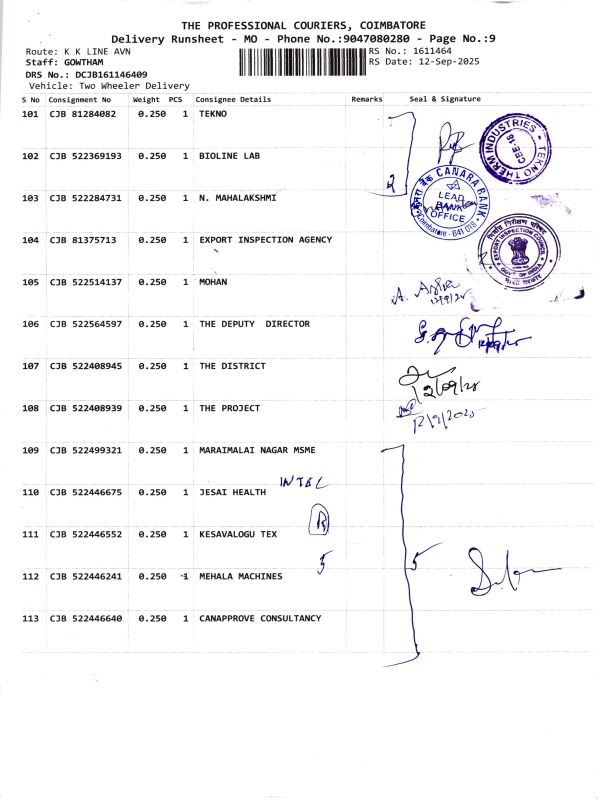 THE PROFESSIONAL COURIERS, COIMBATORE
Delivery Runsheet - MO - Phone No.:9047080280 - Page No.:9
Route: K K LINE AVN RS No.: 1611464
Staff: GOWTHAM RS Date: 12-Sep-2025
DRS No.: DCJB161146409
Vehicle: Two Wheeler Delivery
S No Consignment No Weight PCS Consignee Details Remarks Seal & Signature
101 CJB 81284082 0.250 1 TEKNO
TEKNO THERM INDUSTRIES
CBE-16
102 CJB 522369193 0.250 1 BIOLINE LAB
2
CANARA BANK
LEAD
BANK
OFFICE
Coimbatore - 641 018
103 CJB 522284731 0.250 1 N. MAHALAKSHMI
104 CJB 81375713 0.250 1 EXPORT INSPECTION AGENCY
निर्यात निरीक्षण परिषद
EXPORT INSPECTION COUNCIL
GOVT OF INDIA
भारत सरकार
105 CJB 522514137 0.250 1 MOHAN
12/9/25
106 CJB 522564597 0.250 1 THE DEPUTY DIRECTOR
107 CJB 522408945 0.250 1 THE DISTRICT
12/09/25
108 CJB 522408939 0.250 1 THE PROJECT
12/9/2025
109 CJB 522499321 0.250 1 MARAIMALAI NAGAR MSME
110 CJB 522446675 0.250 1 JESAI HEALTH
R
111 CJB 522446552 0.250 1 KESAVALOGU TEX
5 5
112 CJB 522446241 0.250 1 MEHALA MACHINES
113 CJB 522446640 0.250 1 CANAPPROVE CONSULTANCY